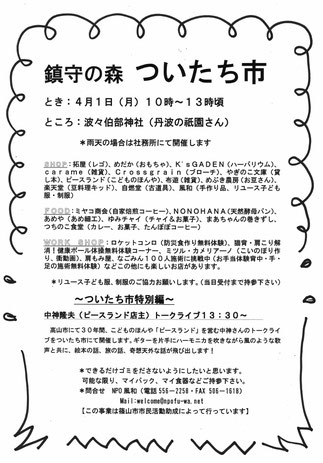 鎮守の森 ついたち市
とき：４月１日（月）１０時～１３時頃
ところ：波々伯部神社（丹波の祇園さん）
＊雨天の場合は社務所にて開催します
SHOP：拓屋（レゴ）、めだか（おもちゃ）、K'sGADEN（ハーバリウム）、
carame（雑貨）、Crossgrain（ブローチ）、やぎのこ文庫（貸
し本）、ピースランド（こどものほんや）、布遊（雑貨）、めぶき農房（お豆さん）、
楽天堂（豆料理キッド）、自然堂（古道具）、風和（手作り品、リユース子ども
服・制服）
FOOD：ミヤコ商会（自家焙煎コーヒー）、NONOHANA（天然酵母パン）、
あめや（あめ細工）、ゆみチャイ（チャイ＆お菓子）、まあちゃんの巻きずし、
つちのこ食堂（カレー、お菓子、たんぽぽコーヒー）
WORK SHOP：ロケットコンロ（防災食作り無料体験）、猫背・肩こり解
消！健康ボール体操無料体験コーナー、ミツル・カメリアーノ（こいのぼり作
り、衝動画）、肩もみ屋、なごみん１００人施術に挑戦中（お手当体験背中・手・
足の施術無料体験）などこの他にも楽しいお店があります。
＊リユース子ども服、制服のご協力お願いします。（当日受付まで持参下さい）
～ついたち市特別編～
中神隆夫（ピースランド店主）トークライブ１３：３０～
高山市にて３０年間、こどものほんや「ピースランド」を営む中神さんのトークライ
ブをついたち市にて開催します。ギターを片手にハーモニカを吹きながら風のような歌
声と共に、絵本の話、旅の話、奇想天外な話が飛び出します！
＊できるだけゴミをださないようにしたいと思います。
可能な限り、マイバック、マイ食器などご持参下さい。
＊問合せ　NPO風和（電話 556－2258・FAX 506－1618）
Mail:welcome@npofu-wa.net
【この事業は篠山市市民活動助成によって行っています】